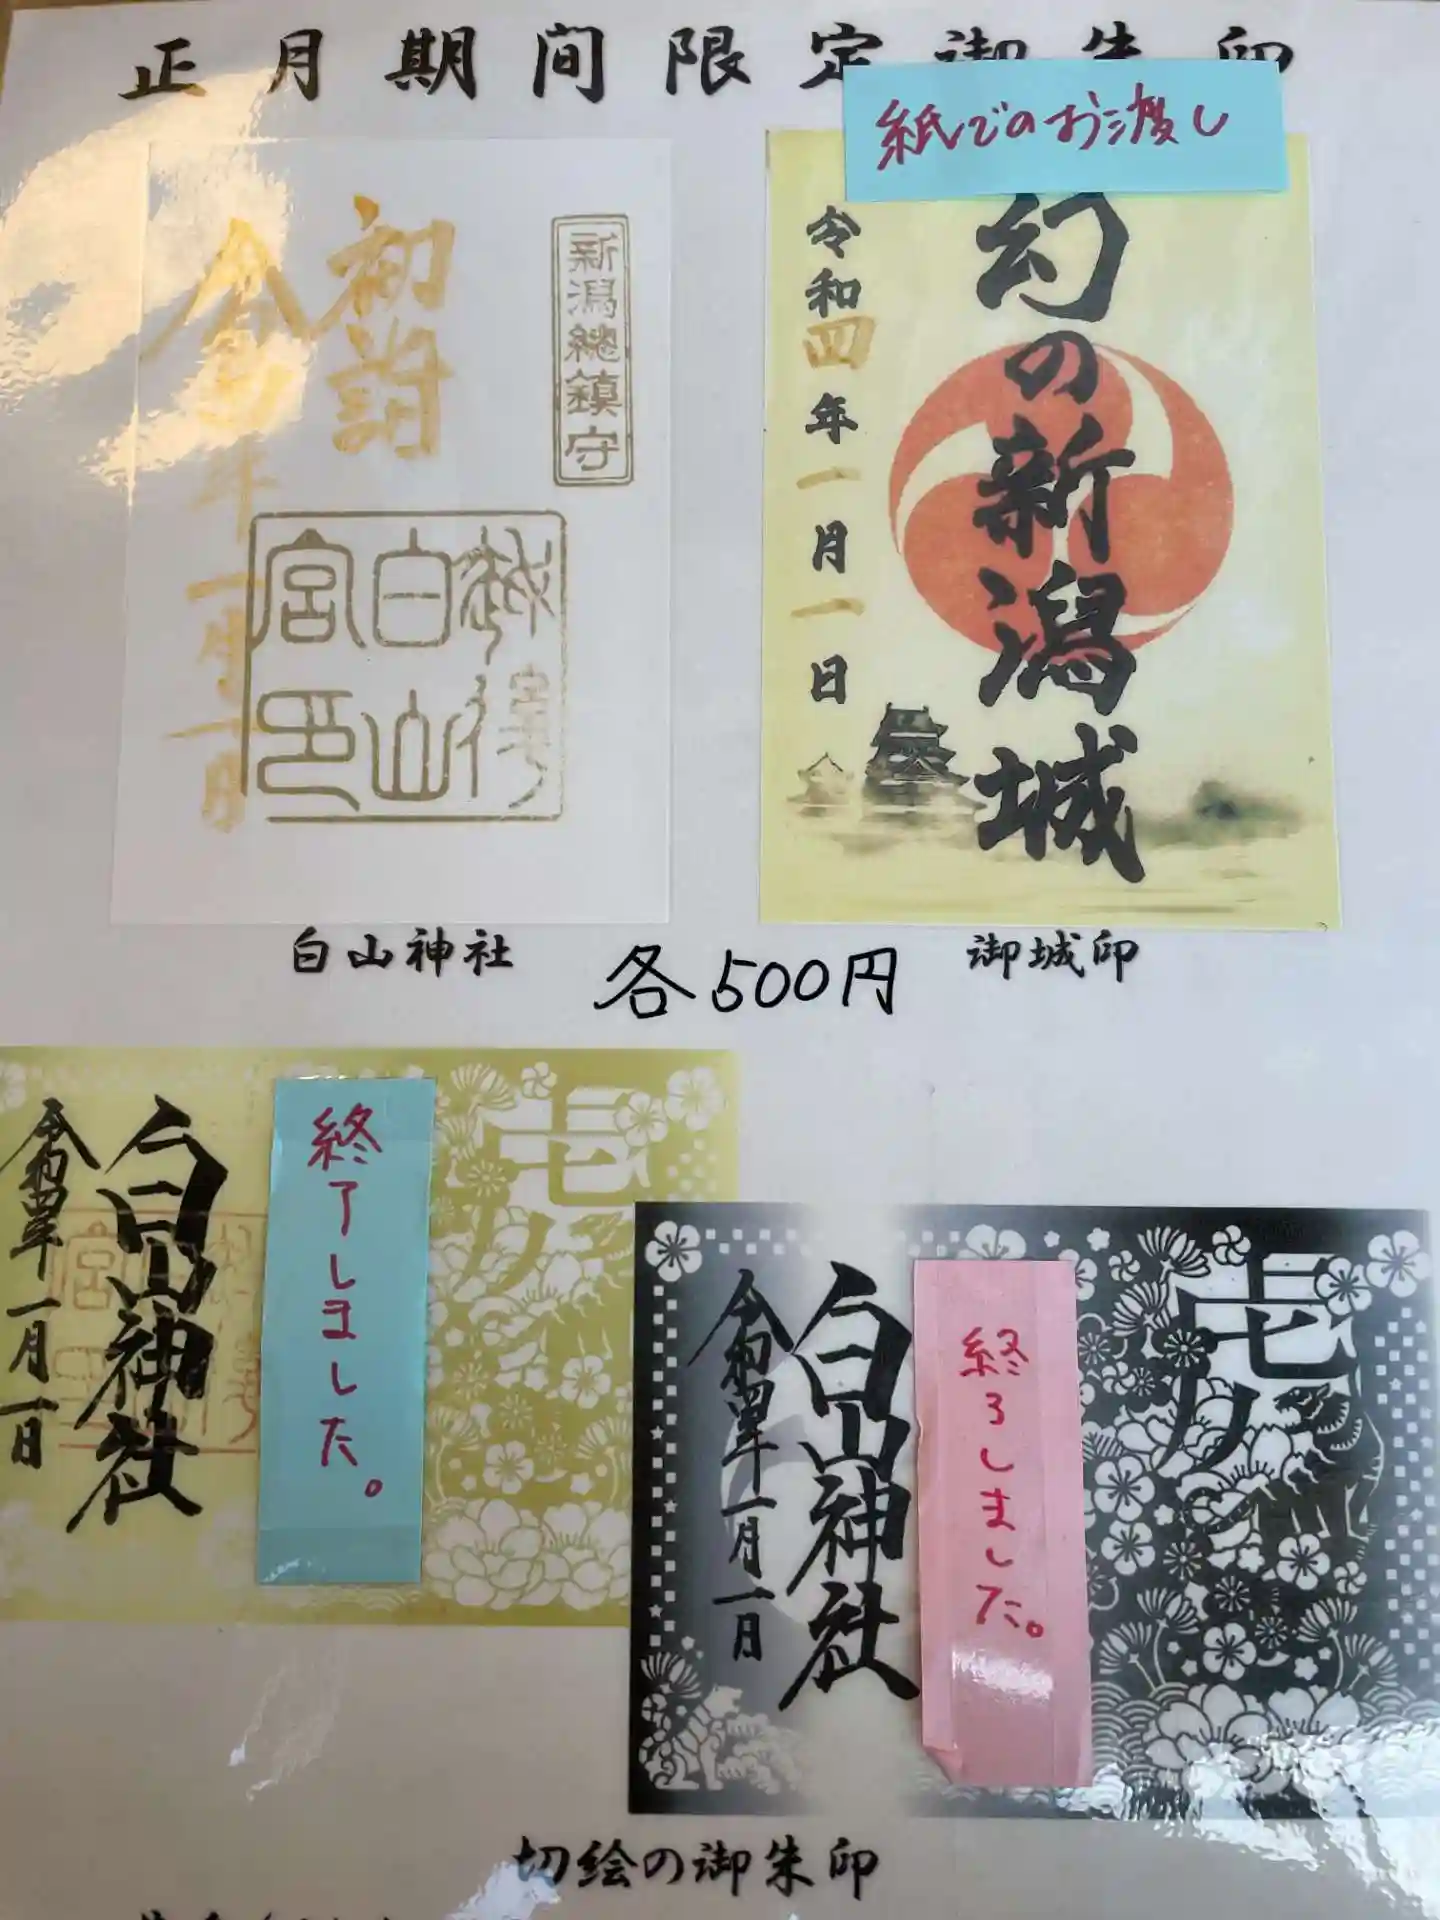 正月期間限定御朱印
紙でのお渡し
初詣
令和四年一月一日
新潟總鎮守
白山
宮印
幻の新潟城
令和四年一月一日
白山神社
御城印
各500円
壱ノ
終了しました。
白山神社
令和四年一月一日
壱ノ
終了しました。
白山神社
令和四年一月一日
切絵の御朱印